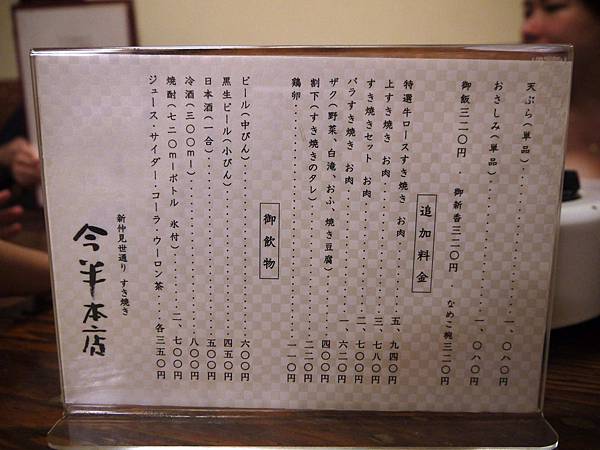 天ぷら(単品)・・・・・・・・・・・一、〇八〇円
おさしみ(単品)・・・・・・・・・・一、〇八〇円
御飯三二〇円　御新香三二〇円　なめこ椀三二〇円
追加料金
特選牛ロースすき焼き　お肉・・・・・五、九四〇円
上すき焼き　お肉・・・・・・・・・・三、七八〇円
すき焼きセット　お肉・・・・・・・・二、七〇〇円
バラすき焼き　お肉・・・・・・・・・一、六二〇円
ザク(野菜、白滝、おふ、焼き豆腐)・・・・四〇〇円
割下(すき焼きのタレ)・・・・・・・・・二二〇円
鶏卵・・・・・・・・・・・・・・・・一一〇円
御飲物
ビール(中びん)・・・・・・・・・・・六〇〇円
黒生ビール(小びん)・・・・・・・・・四五〇円
日本酒(一合)・・・・・・・・・・・・五〇〇円
冷酒(三〇〇ml)・・・・・・・・・・・八〇〇円
焼酎(七二〇mlボトル　氷付)・・・・・二、七〇〇円
ジュース・サイダー・コーラ・ウーロン茶・・・各三五〇円
新仲見世通り　すき焼き
今半本店